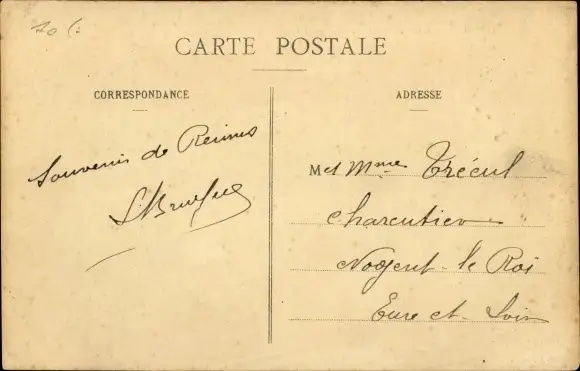 CARTE POSTALE
CORRESPONDANCE
ADRESSE
Souvenir de Rennes
M et Mme Trécul
Charcutier
Nogent-le Roi
Eure et-Loir